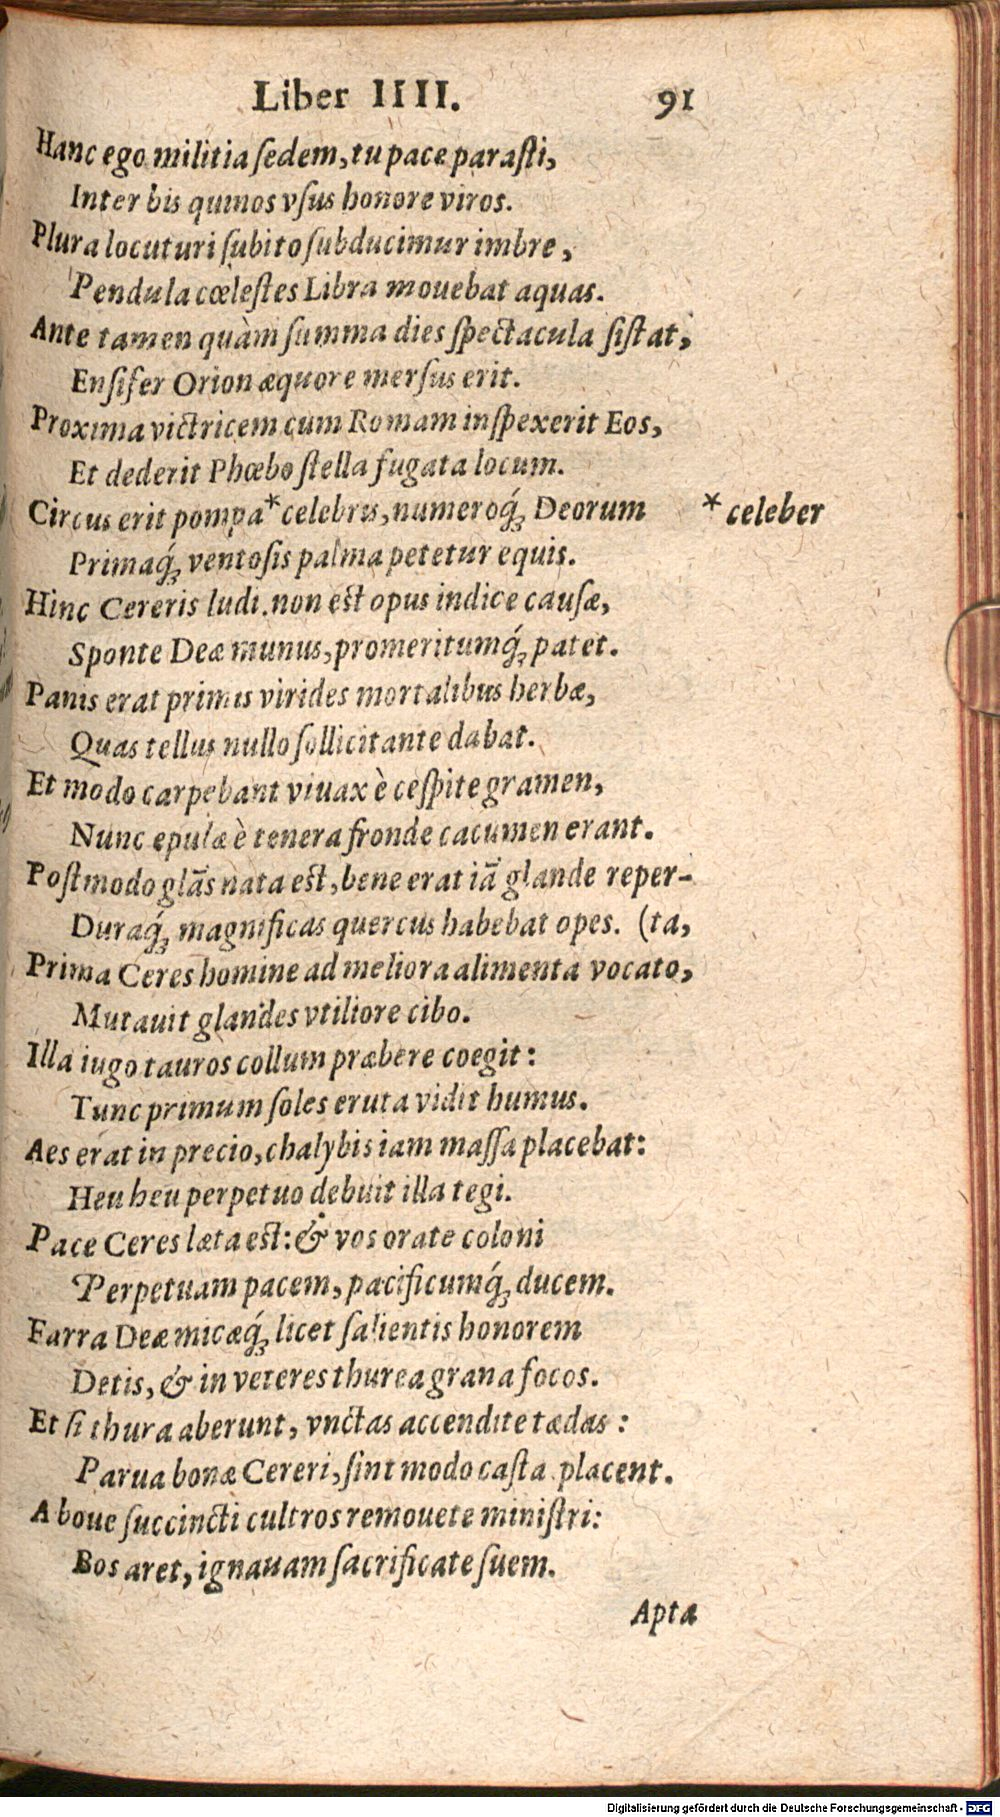 Liber IIII. 91
Hanc ego militia ſedem, tu pace paraſti,
Inter bis quinos vſus honore viros.
Plura locuturi ſubito ſubducimur imbre,
Pendula cœleſtes Libra mouebat aquas.
Ante tamen quàm ſumma dies ſpectacula ſiſtat,
Enſifer Orion æquore merſus erit.
Proxima victricem cum Romam inſpexerit Eos,
Et dederit Phœbo ſtella fugata locum.
Circus erit pompa* celebris, numeroq́; Deorum * celeber
Primaq́; ventoſis palma petetur equis.
Hinc Cereris ludi. non est opus indice cauſæ,
Sponte Deæ munus, promeritumq́; patet.
Panis erat primis virides mortalibus herbæ,
Quas tellus nullo ſollicitante dabat.
Et modo carpebant viuax è ceſpite gramen,
Nunc epulæ è tenera fronde cacumen erant.
Poſtmodo glãs nata est, bene erat iã glande reper-
Duraq́; magnificas quercus habebat opes. (ta,
Prima Ceres homine ad meliora alimenta vocato,
Mutauit glandes vtiliore cibo.
Illa iugo tauros collum præbere coegit:
Tunc primum ſoles eruta vidit humus.
Aes erat in precio, chalybis iam maſſa placebat:
Heu heu perpetuo debuit illa tegi.
Pace Ceres læta est: & vos orate coloni
Perpetuam pacem, pacificumq́; ducem.
Farra Deæ micæq́; licet ſalientis honorem
Detis, & in veteres thurea grana focos.
Et ſi thura aberunt, vnctas accendite tædas:
Parua bonæ Cereri, ſint modo caſta placent.
A boue ſuccincti cultros remouete miniſtri:
Bos aret, ignauam ſacrificate ſuem.
Apta
Digitalisierung gefördert durch die Deutsche Forschungsgemeinschaft - DFG